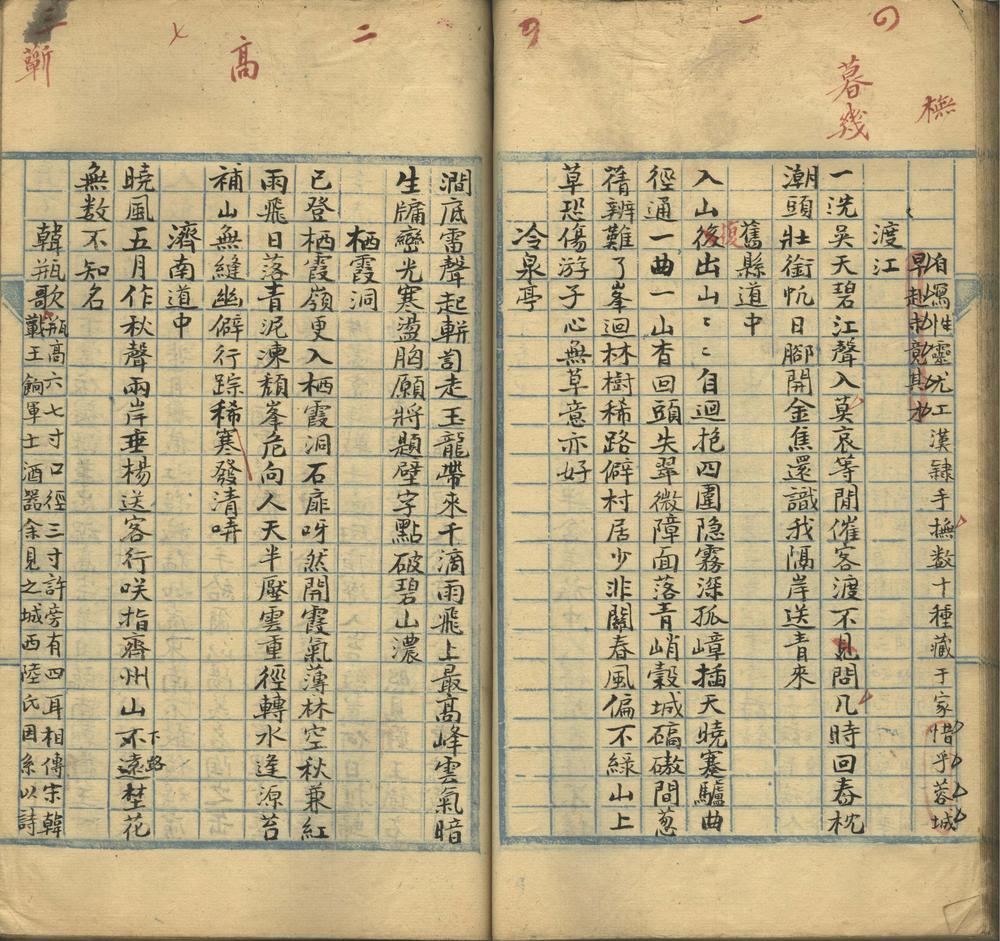 橅
暮幾
高
蘄
一
二
自寫性靈尤工漢隸手撫数十種藏于家惜乎蓉城
早赴未竟其才
渡江
一洗吳天碧江聲入莫哀等閒催客渡不見問凡時回舂枕
潮頭壯銜忛日腳開金焦還識我隔岸送青來
舊縣道中
入山復出山〻〻自迴抱四圍隐霧深孤嶂插天曉蹇驢曲
徑通一曲一山杳回頭失翠微障面落青峭穀城碻磝間葱
蒨辨難了峯迴林樹稀路僻村居少非關春風偏不綠山上
草恐傷游子心無草意亦好
冷泉亭
澗底雷聲起輧訇走玉龍帶來千滴雨飛上最高峰雲氣暗
生牖巒光寒盪胸願將題壁字點破碧山濃
栖霞洞
已登栖霞嶺更入栖霞洞石扉呀然開霞氣薄林空秋兼紅
雨飛日落青泥凍頽峯危向人天半壓雲重徑轉水逢源苔
補山無縫幽僻行踪稀寒發清哢
濟南道中
曉風五月作秋聲兩岸垂楊送客行咲指齊州山下路埜花
無数不知名
韓瓶歌
瓶高六七寸口徑三寸許旁有四耳相傳宋韓
蘄王餉軍士酒器余見之城西陸氏因系以詩